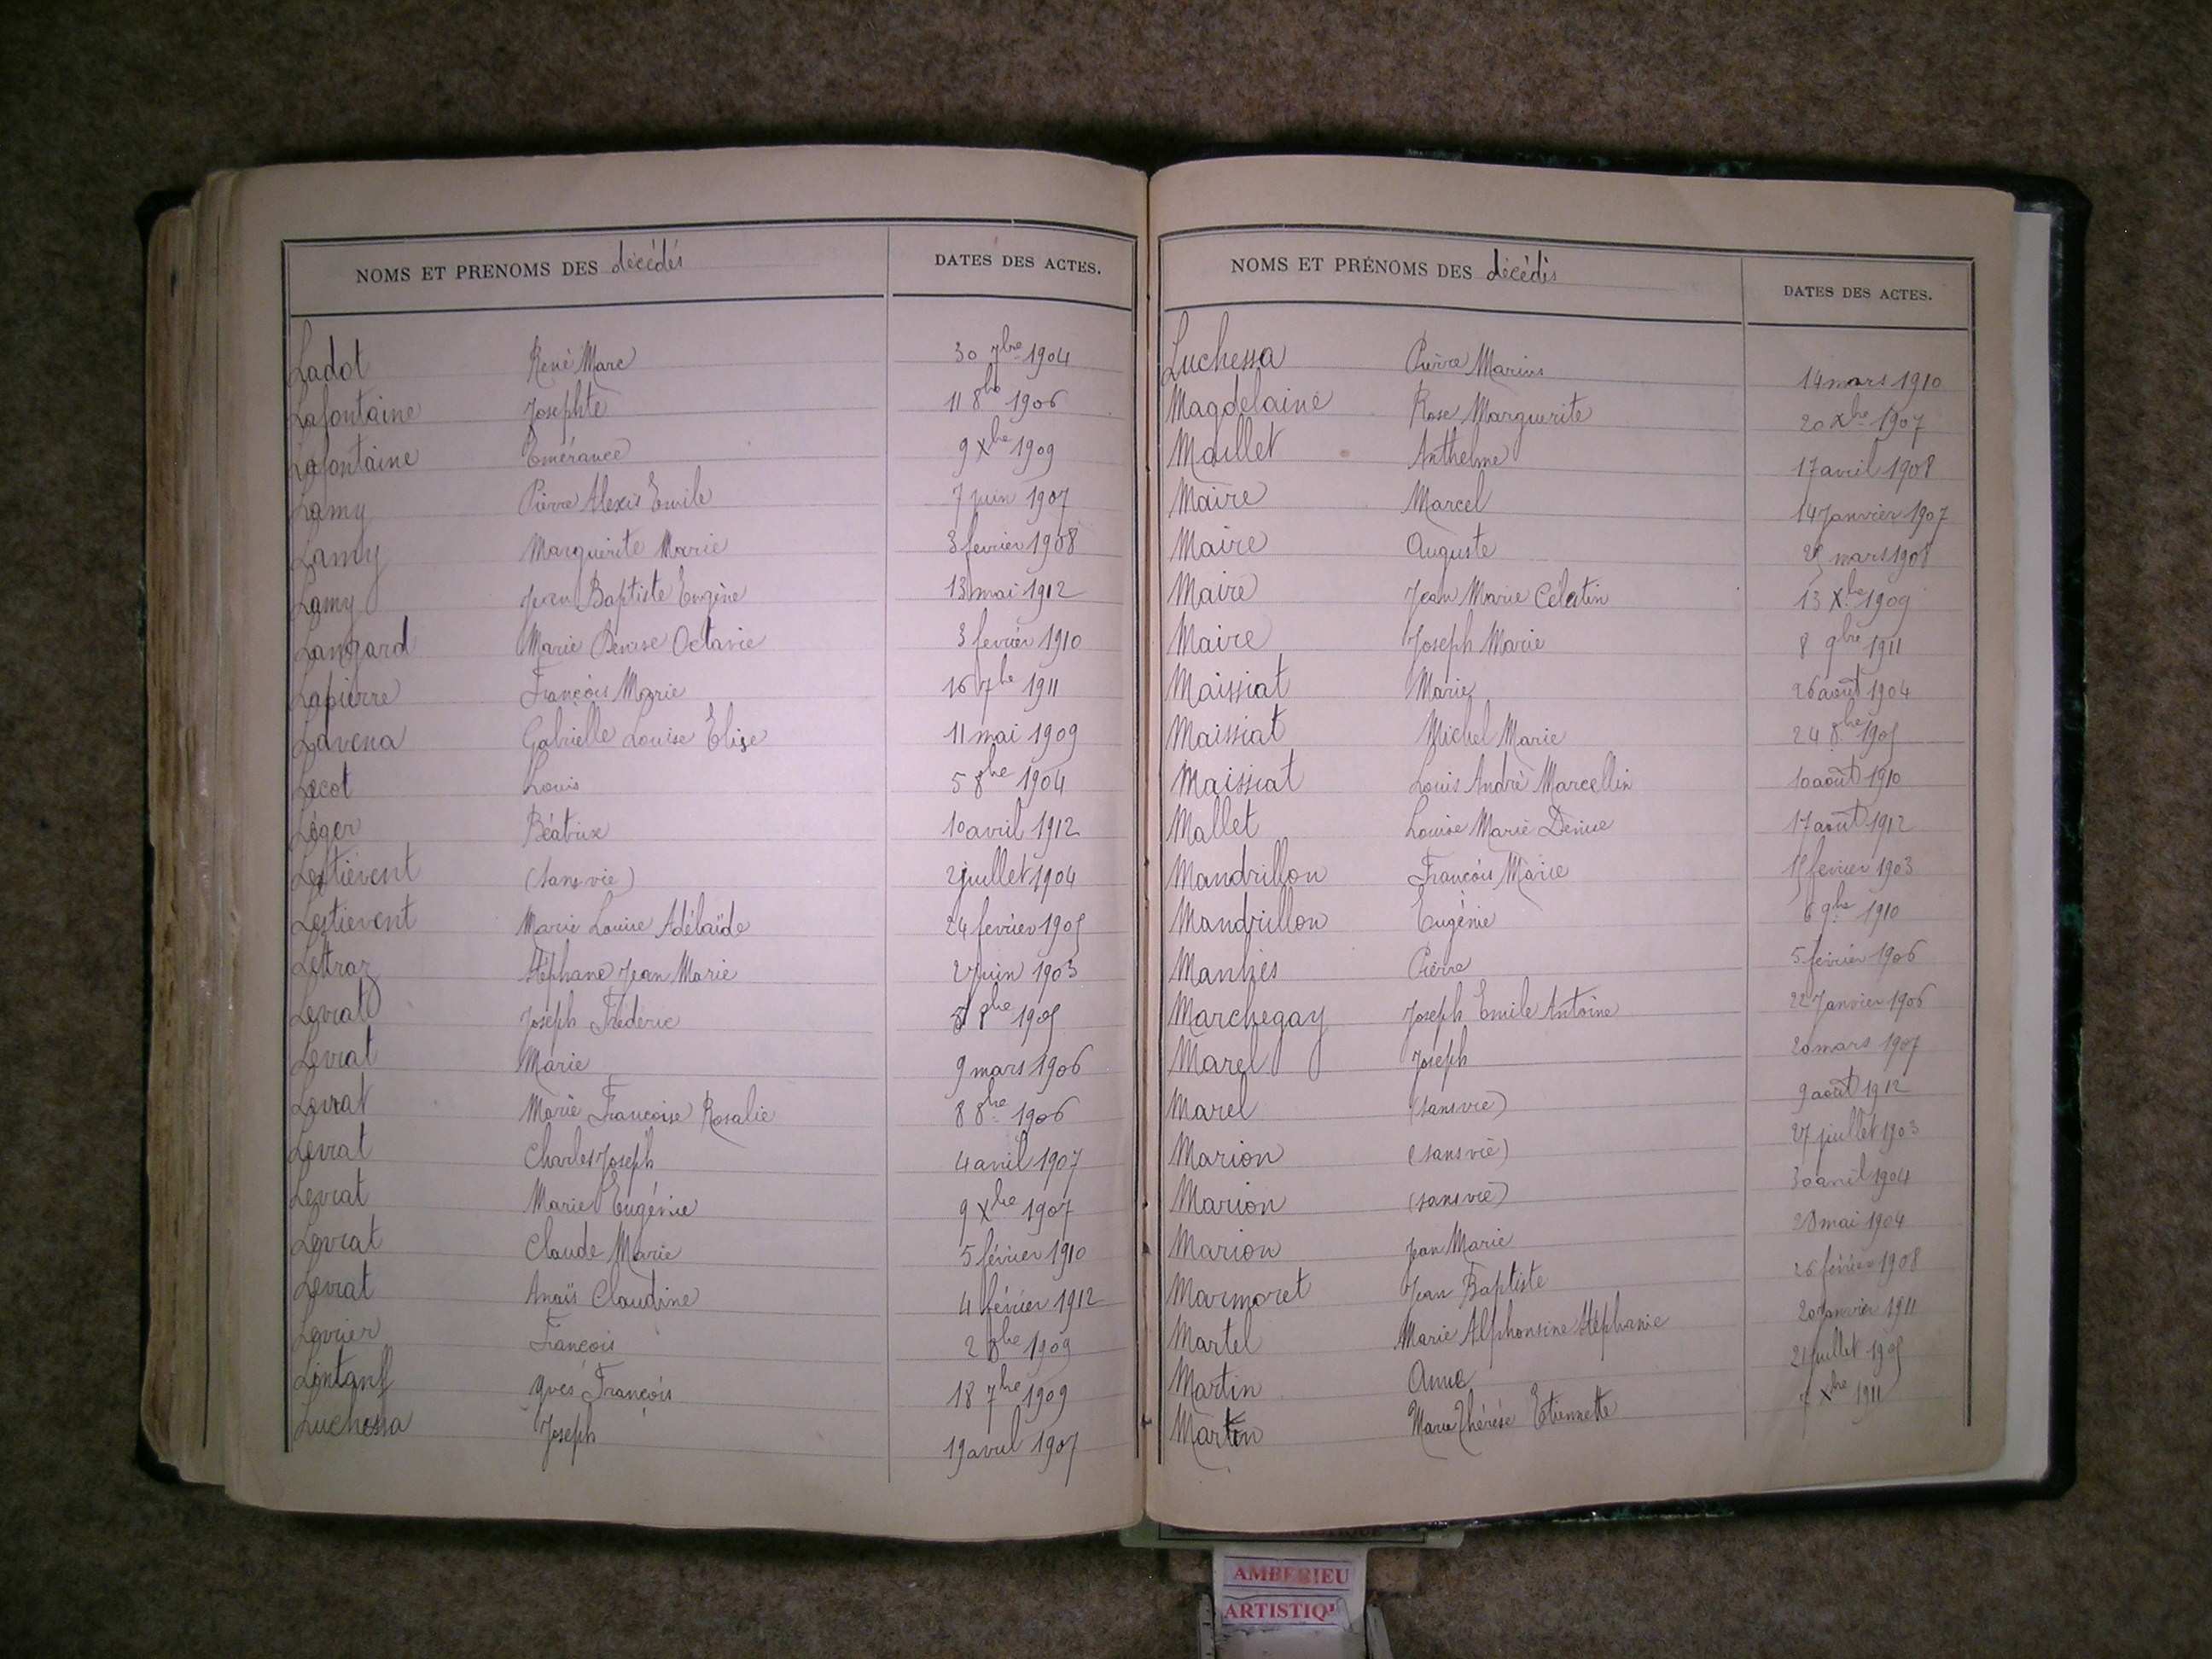 NOMS ET PRENOMS DES décédés DATES DES ACTES.
Ladot René Marc 30 7bre 1904
Lafontaine Josephte 11 8bre 1906
Lafontaine Emérance 9 Xbre 1909
Lamy Pierre Alexis Emile 7 juin 1907
Lamy Marguerite Marie 3 fevrier 1908
Lamy Jean Baptiste Eugène 13 mai 1912
Langard Marie Denise Octavie 3 fevrier 1910
Lapierre François Marie 16 7bre 1911
Lavena Gabrielle Louise Elise 11 mai 1909
Lecot Louis 5 8bre 1904
Léger Béatrix 10 avril 1912
Lestievent (sans vie) 2 juillet 1904
Lestievent Marie Louise Adélaïde 24 fevrier 1905
Lettraz Stéphane Jean Marie 2 juin 1903
Levrat Joseph Fréderic 1905
Levrat Marie 9 mars 1906
Levrat Marie Françoise Rosalie 8 8bre 1906
Levrat Charles Joseph 4 avril 1907
Levrat Marie Eugénie 9 Xbre 1907
Levrat Claude Marie 5 février 1910
Levrat Anaïs Claudine 4 février 1912
Levrier François 2 8bre 1909
Lintanf Yves François 18 7bre 1909
Luchessa Joseph 19 avril 1907
NOMS ET PRÉNOMS DES décédés DATES DES ACTES.
Luchessa Pierre Marius 14 mars 1910
Magdelaine Rose Marguerite 20 Xbre 1907
Maillet Anthelme 17 avril 1908
Maire Marcel 14 Janvier 1907
Maire Auguste mars 1908
Maire Jean Marie Célestin 13 Xbre 1909
Maire Joseph Marie 8 9bre 1911
Maissiat Marie 26 août 1904
Maissiat Michel Marie 24 8bre 1905
Maissiat Louis André Marcellin 10 août 1910
Mallet Louise Marie Denise 17 août 1912
Mandrillon François Marie 15 fevrier 1903
Mandrillon Eugénie 6 9bre 1910
Manhès Pierre 5 fevrier 1906
Marchegay Joseph Emile Antoine 22 Janvier 1906
Marel Joseph 20 mars 1907
Marel (sans vie) 9 août 1912
Marion (sans vie) 27 juillet 1903
Marion (sans vie) 30 avril 1904
Marion Jean Marie 28 mai 1904
Marmoret Jean Baptiste 26 février 1908
Martel Marie Alphonsine Stéphanie 20 Janvier 1911
Martin Anna 21 Juillet 1905
Martin Marie Thérèse Etiennette 7 Xbre 1911
AMBERIEU
ARTISTIQU